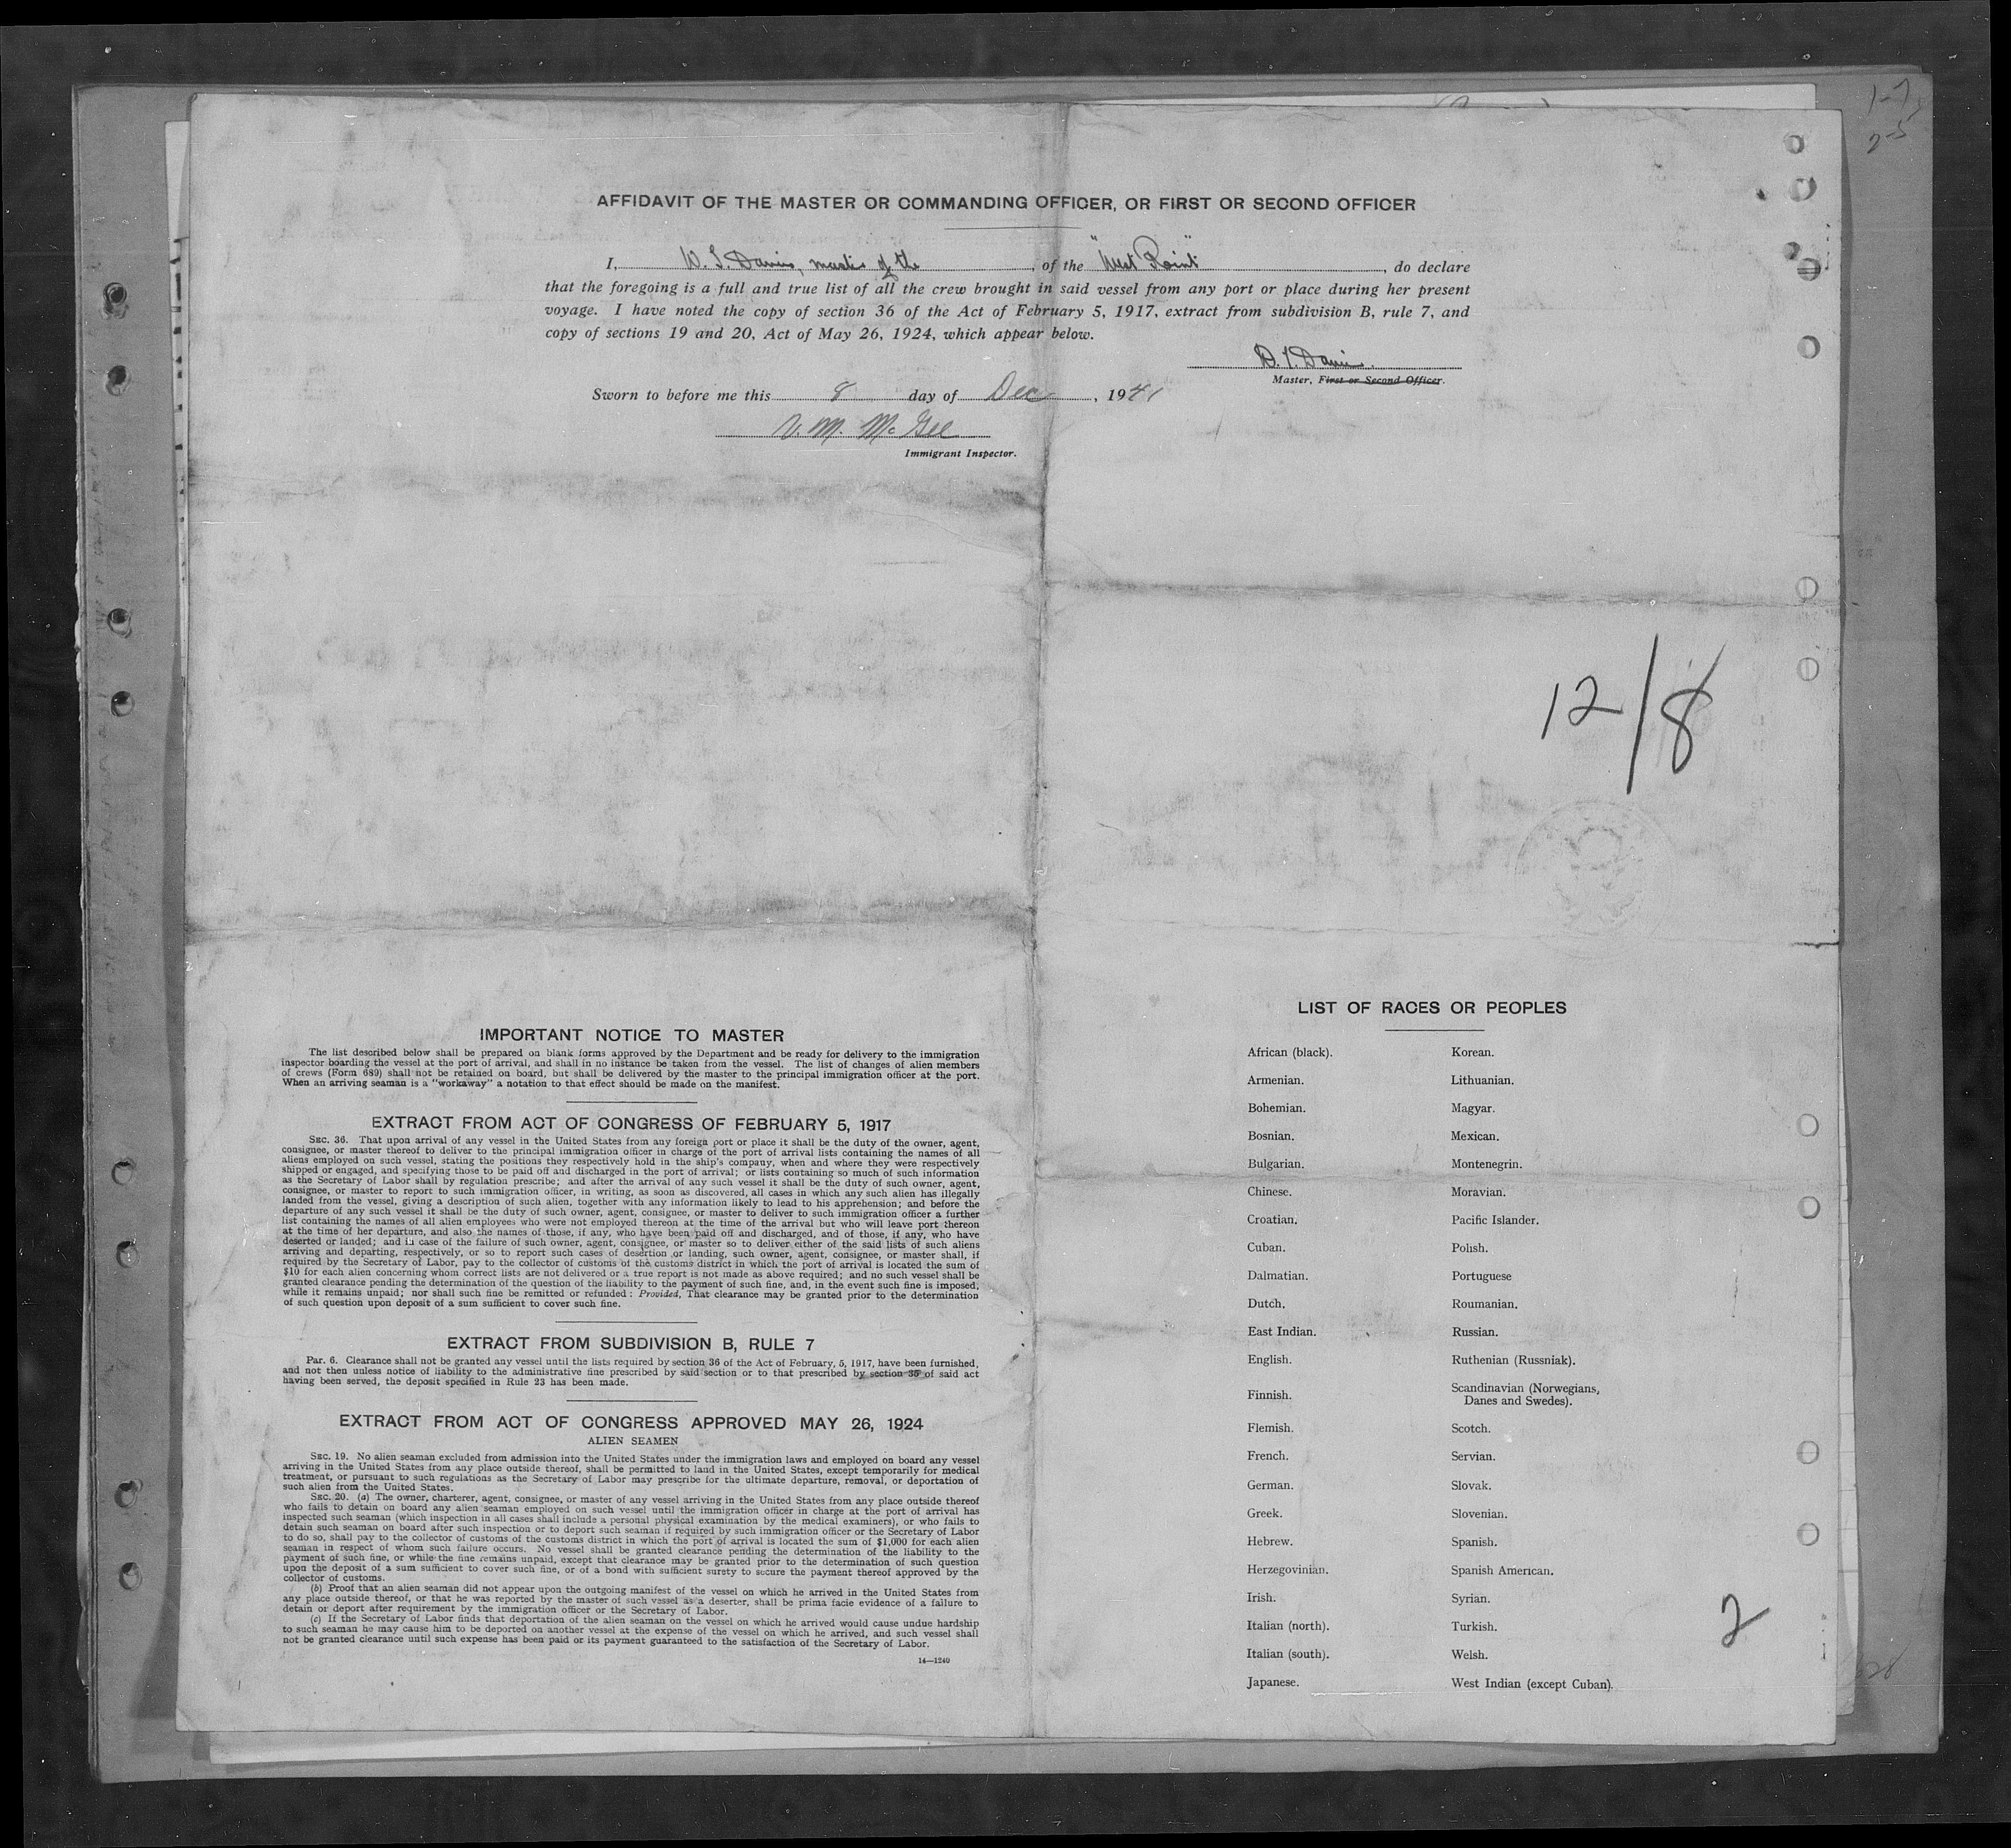 1-7
2-5
AFFIDAVIT OF THE MASTER OR COMMANDING OFFICER, OR FIRST OR SECOND OFFICER
I, Davis, master of the, of the "West Point", do declare
that the foregoing is a full and true list of all the crew brought in said vessel from any port or place during her present
voyage. I have noted the copy of section 36 of the Act of February 5, 1917, extract from subdivision B, rule 7, and
copy of sections 19 and 20, Act of May 26, 1924, which appear below.
Davis
Master, First or Second Officer.
Sworn to before me this 8 day of Dec, 1941
V. M. McGee
Immigrant Inspector.
12/8
IMPORTANT NOTICE TO MASTER
The list described below shall be prepared on blank forms approved by the Department and be ready for delivery to the immigration
inspector boarding the vessel at the port of arrival, and shall in no instance be taken from the vessel. The list of changes of alien members
of crews (Form 689) shall not be retained on board, but shall be delivered by the master to the principal immigration officer at the port.
When an arriving seaman is a "workaway" a notation to that effect should be made on the manifest.
EXTRACT FROM ACT OF CONGRESS OF FEBRUARY 5, 1917
SEC. 36. That upon arrival of any vessel in the United States from any foreign port or place it shall be the duty of the owner, agent,
consignee, or master thereof to deliver to the principal immigration officer in charge of the port of arrival lists containing the names of all
aliens employed on such vessel, stating the positions they respectively hold in the ship's company, when and where they were respectively
shipped or engaged, and specifying those to be paid off and discharged in the port of arrival; or lists containing so much of such information
as the Secretary of Labor shall by regulation prescribe; and after the arrival of any such vessel it shall be the duty of such owner, agent,
consignee, or master to report to such immigration officer, in writing, as soon as discovered, all cases in which any such alien has illegally
landed from the vessel, giving a description of such alien, together with any information likely to lead to his apprehension; and before the
departure of any such vessel it shall be the duty of such owner, agent, consignee, or master to deliver to such immigration officer a further
list containing the names of all alien employees who were not employed thereon at the time of the arrival but who will leave port thereon
at the time of her departure, and also the names of those, if any, who have been paid off and discharged, and of those, if any, who have
deserted or landed; and in case of the failure of such owner, agent, consignee, or master so to deliver either of the said lists of such aliens
arriving and departing, respectively, or so to report such cases of desertion or landing, such owner, agent, consignee, or master shall, if
required by the Secretary of Labor, pay to the collector of customs of the customs district in which the port of arrival is located the sum of
$10 for each alien concerning whom correct lists are not delivered or a true report is not made as above required; and no such vessel shall be
granted clearance pending the determination of the question of the liability to the payment of such fine, and, in the event such fine is imposed,
while it remains unpaid; nor shall such fine be remitted or refunded: Provided, That clearance may be granted prior to the determination
of such question upon deposit of a sum sufficient to cover such fine.
EXTRACT FROM SUBDIVISION B, RULE 7
Par. 6. Clearance shall not be granted any vessel until the lists required by section 36 of the Act of February, 5, 1917, have been furnished,
and not then unless notice of liability to the administrative fine prescribed by said section or to that prescribed by section 35 of said act
having been served, the deposit specified in Rule 23 has been made.
EXTRACT FROM ACT OF CONGRESS APPROVED MAY 26, 1924
ALIEN SEAMEN
SEC. 19. No alien seaman excluded from admission into the United States under the immigration laws and employed on board any vessel
arriving in the United States from any place outside thereof, shall be permitted to land in the United States, except temporarily for medical
treatment, or pursuant to such regulations as the Secretary of Labor may prescribe for the ultimate departure, removal, or deportation of
such alien from the United States.
SEC. 20. (a) The owner, charterer, agent, consignee, or master of any vessel arriving in the United States from any place outside thereof
who fails to detain on board any alien seaman employed on such vessel until the immigration officer in charge at the port of arrival has
inspected such seaman (which inspection in all cases shall include a personal physical examination by the medical examiners), or who fails to
detain such seaman on board after such inspection or to deport such seaman if required by such immigration officer or the Secretary of Labor
to do so, shall pay to the collector of customs of the customs district in which the port of arrival is located the sum of $1,000 for each alien
seaman in respect of whom such failure occurs. No vessel shall be granted clearance pending the determination of the liability to the
payment of such fine, or while the fine remains unpaid, except that clearance may be granted prior to the determination of such question
upon the deposit of a sum sufficient to cover such fine, or of a bond with sufficient surety to secure the payment thereof approved by the
collector of customs.
(b) Proof that an alien seaman did not appear upon the outgoing manifest of the vessel on which he arrived in the United States from
any place outside thereof, or that he was reported by the master of such vessel as a deserter, shall be prima facie evidence of a failure to
detain or deport after requirement by the immigration officer or the Secretary of Labor.
(c) If the Secretary of Labor finds that deportation of the alien seaman on the vessel on which he arrived would cause undue hardship
to such seaman he may cause him to be deported on another vessel at the expense of the vessel on which he arrived, and such vessel shall
not be granted clearance until such expense has been paid or its payment guaranteed to the satisfaction of the Secretary of Labor.
14—1240
LIST OF RACES OR PEOPLES
African (black). Korean.
Armenian. Lithuanian.
Bohemian. Magyar.
Bosnian. Mexican.
Bulgarian. Montenegrin.
Chinese. Moravian.
Croatian. Pacific Islander.
Cuban. Polish.
Dalmatian. Portuguese
Dutch. Roumanian.
East Indian. Russian.
English. Ruthenian (Russniak).
Finnish. Scandinavian (Norwegians,
Danes and Swedes).
Flemish. Scotch.
French. Servian.
German. Slovak.
Greek. Slovenian.
Hebrew. Spanish.
Herzegovinian. Spanish American.
Irish. Syrian.
Italian (north). Turkish.
Italian (south). Welsh.
Japanese. West Indian (except Cuban).
2